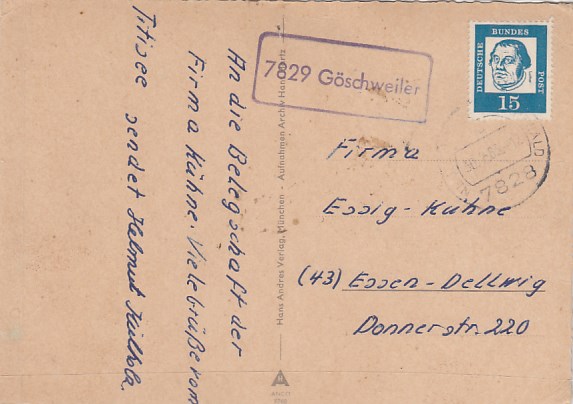 An die Belegschaft der
Firma Kühne. Viele Grüße vom
Titisee sendet Helmut
Hans Andres Verlag, München - Aufnahmen Archiv Hans
7829 Göschweiler
DEUTSCHE BUNDES POST
15
7828
Firma
Essig-Kühne
(43) Essen-Dellwig
Donnerstr. 220